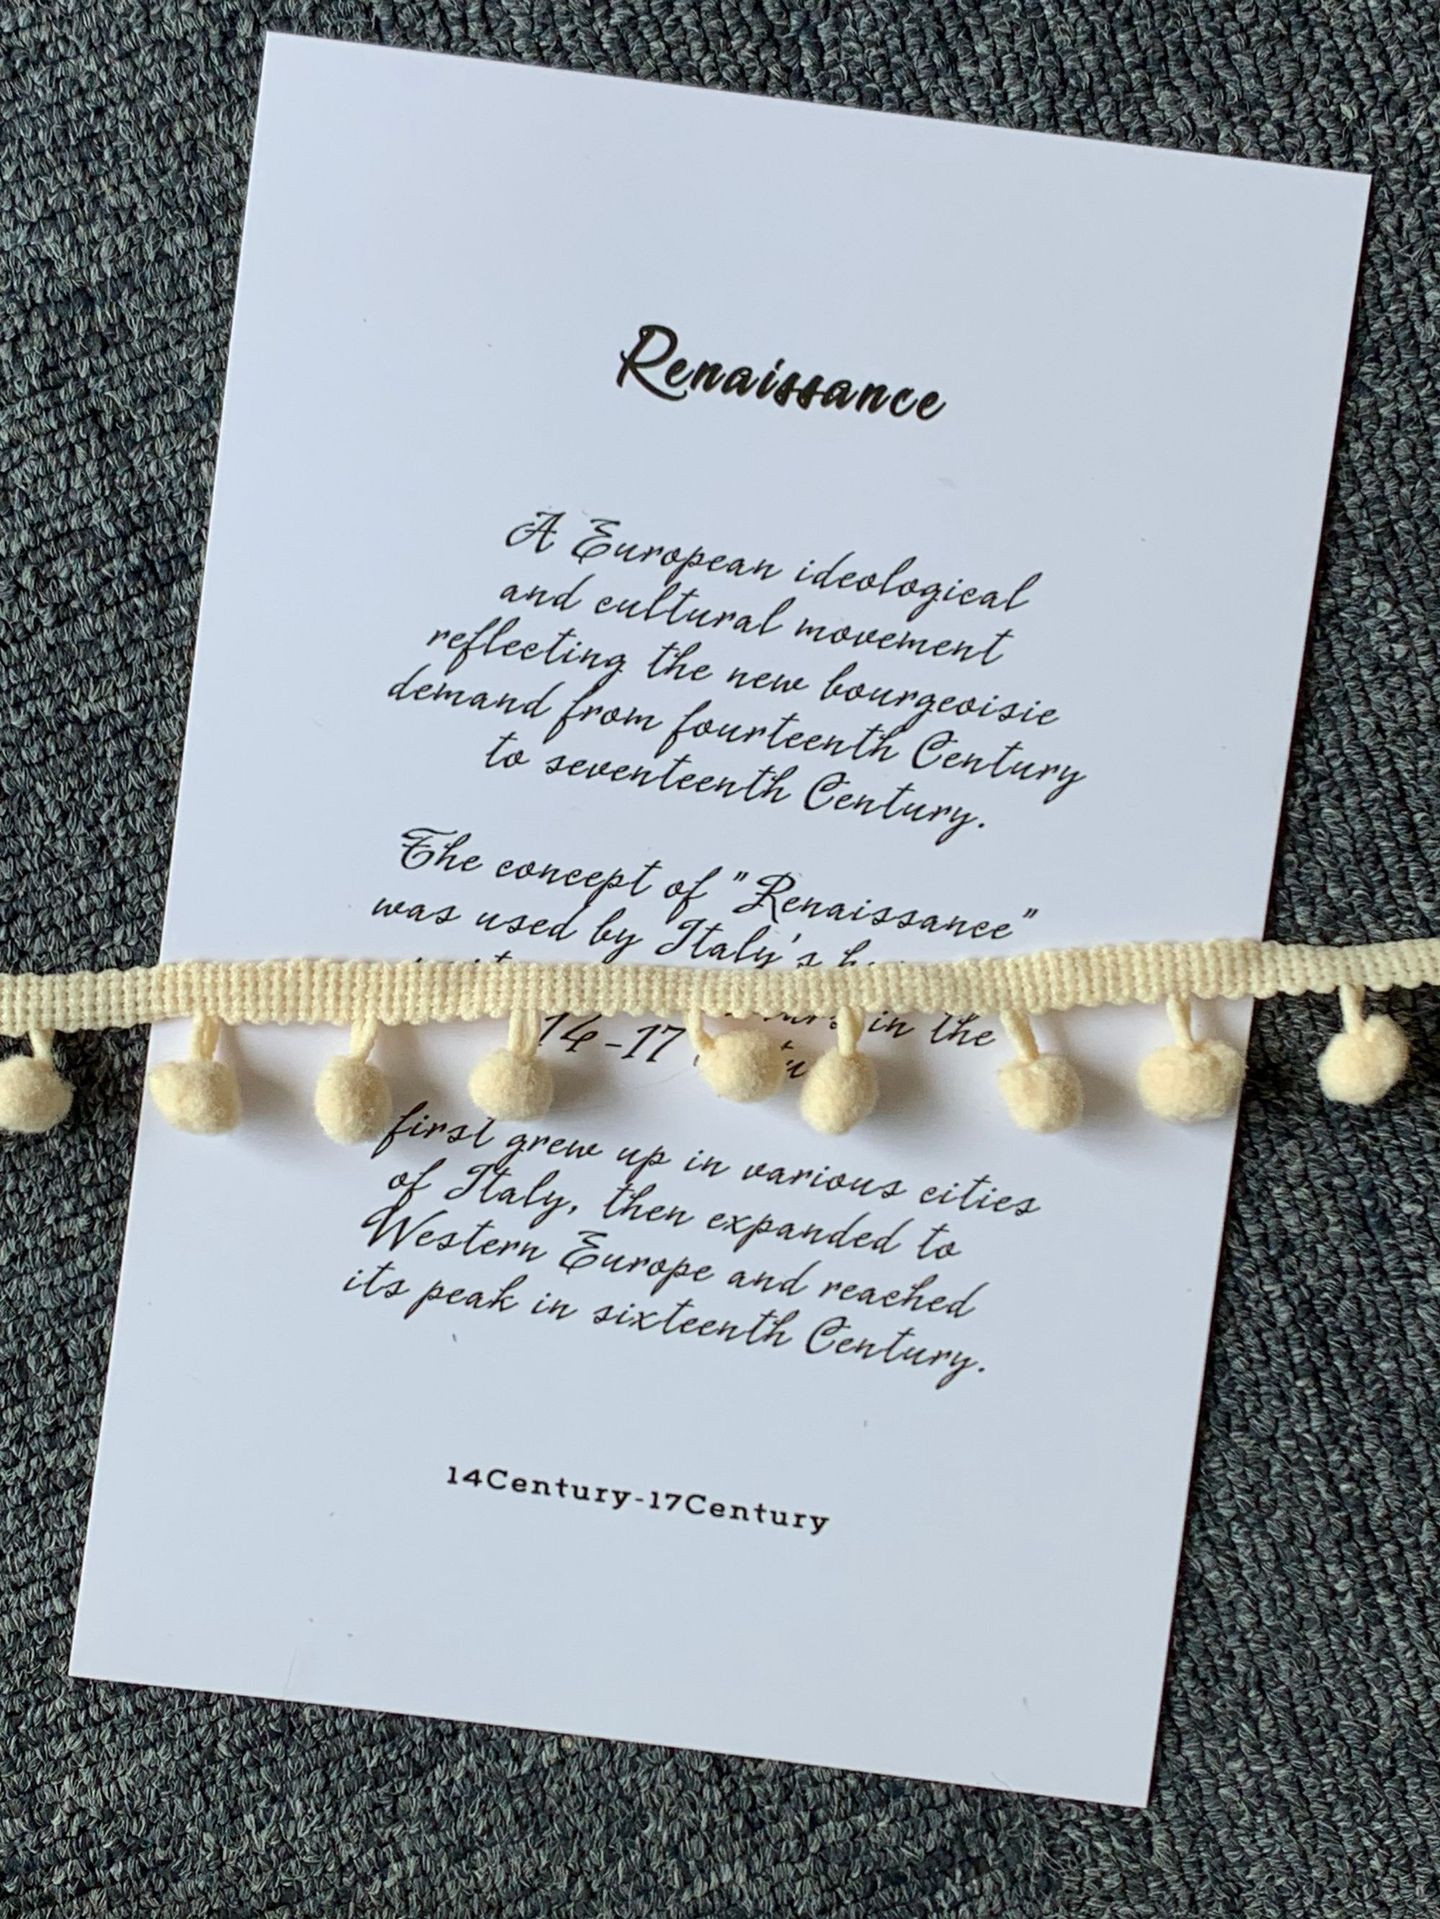 Renaissance
A European ideological
and cultural movement
reflecting the new bourgeoisie
demand from fourteenth Century
to seventeenth Century.
The concept of "Renaissance"
was used by Italy's
in the
14-17
first grew up in various cities
of Italy, then expanded to
Western Europe and reached
its peak in sixteenth Century.
14Century-17Century